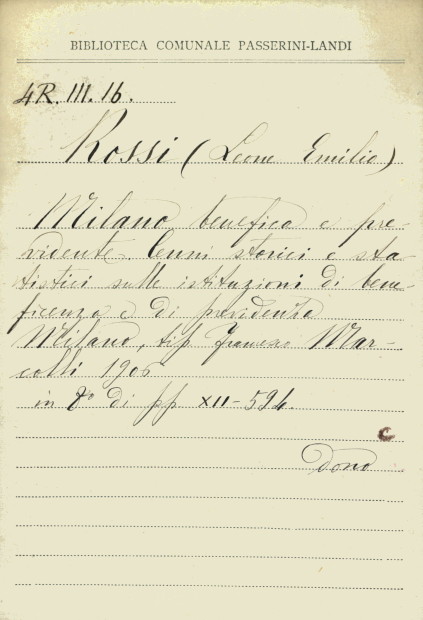 BIBLIOTECA COMUNALE PASSERINI-LANDI
4R. III. 16.
Rossi (Leone Emilio)
Milano benefica e pre-
vidente. Cenni storici e sta-
tistici sulle istituzioni di bene-
ficenza e di previdenza
Milano, tip Francesco Mar-
colli 1906
in 8° di pp XII-594.
C
Dono